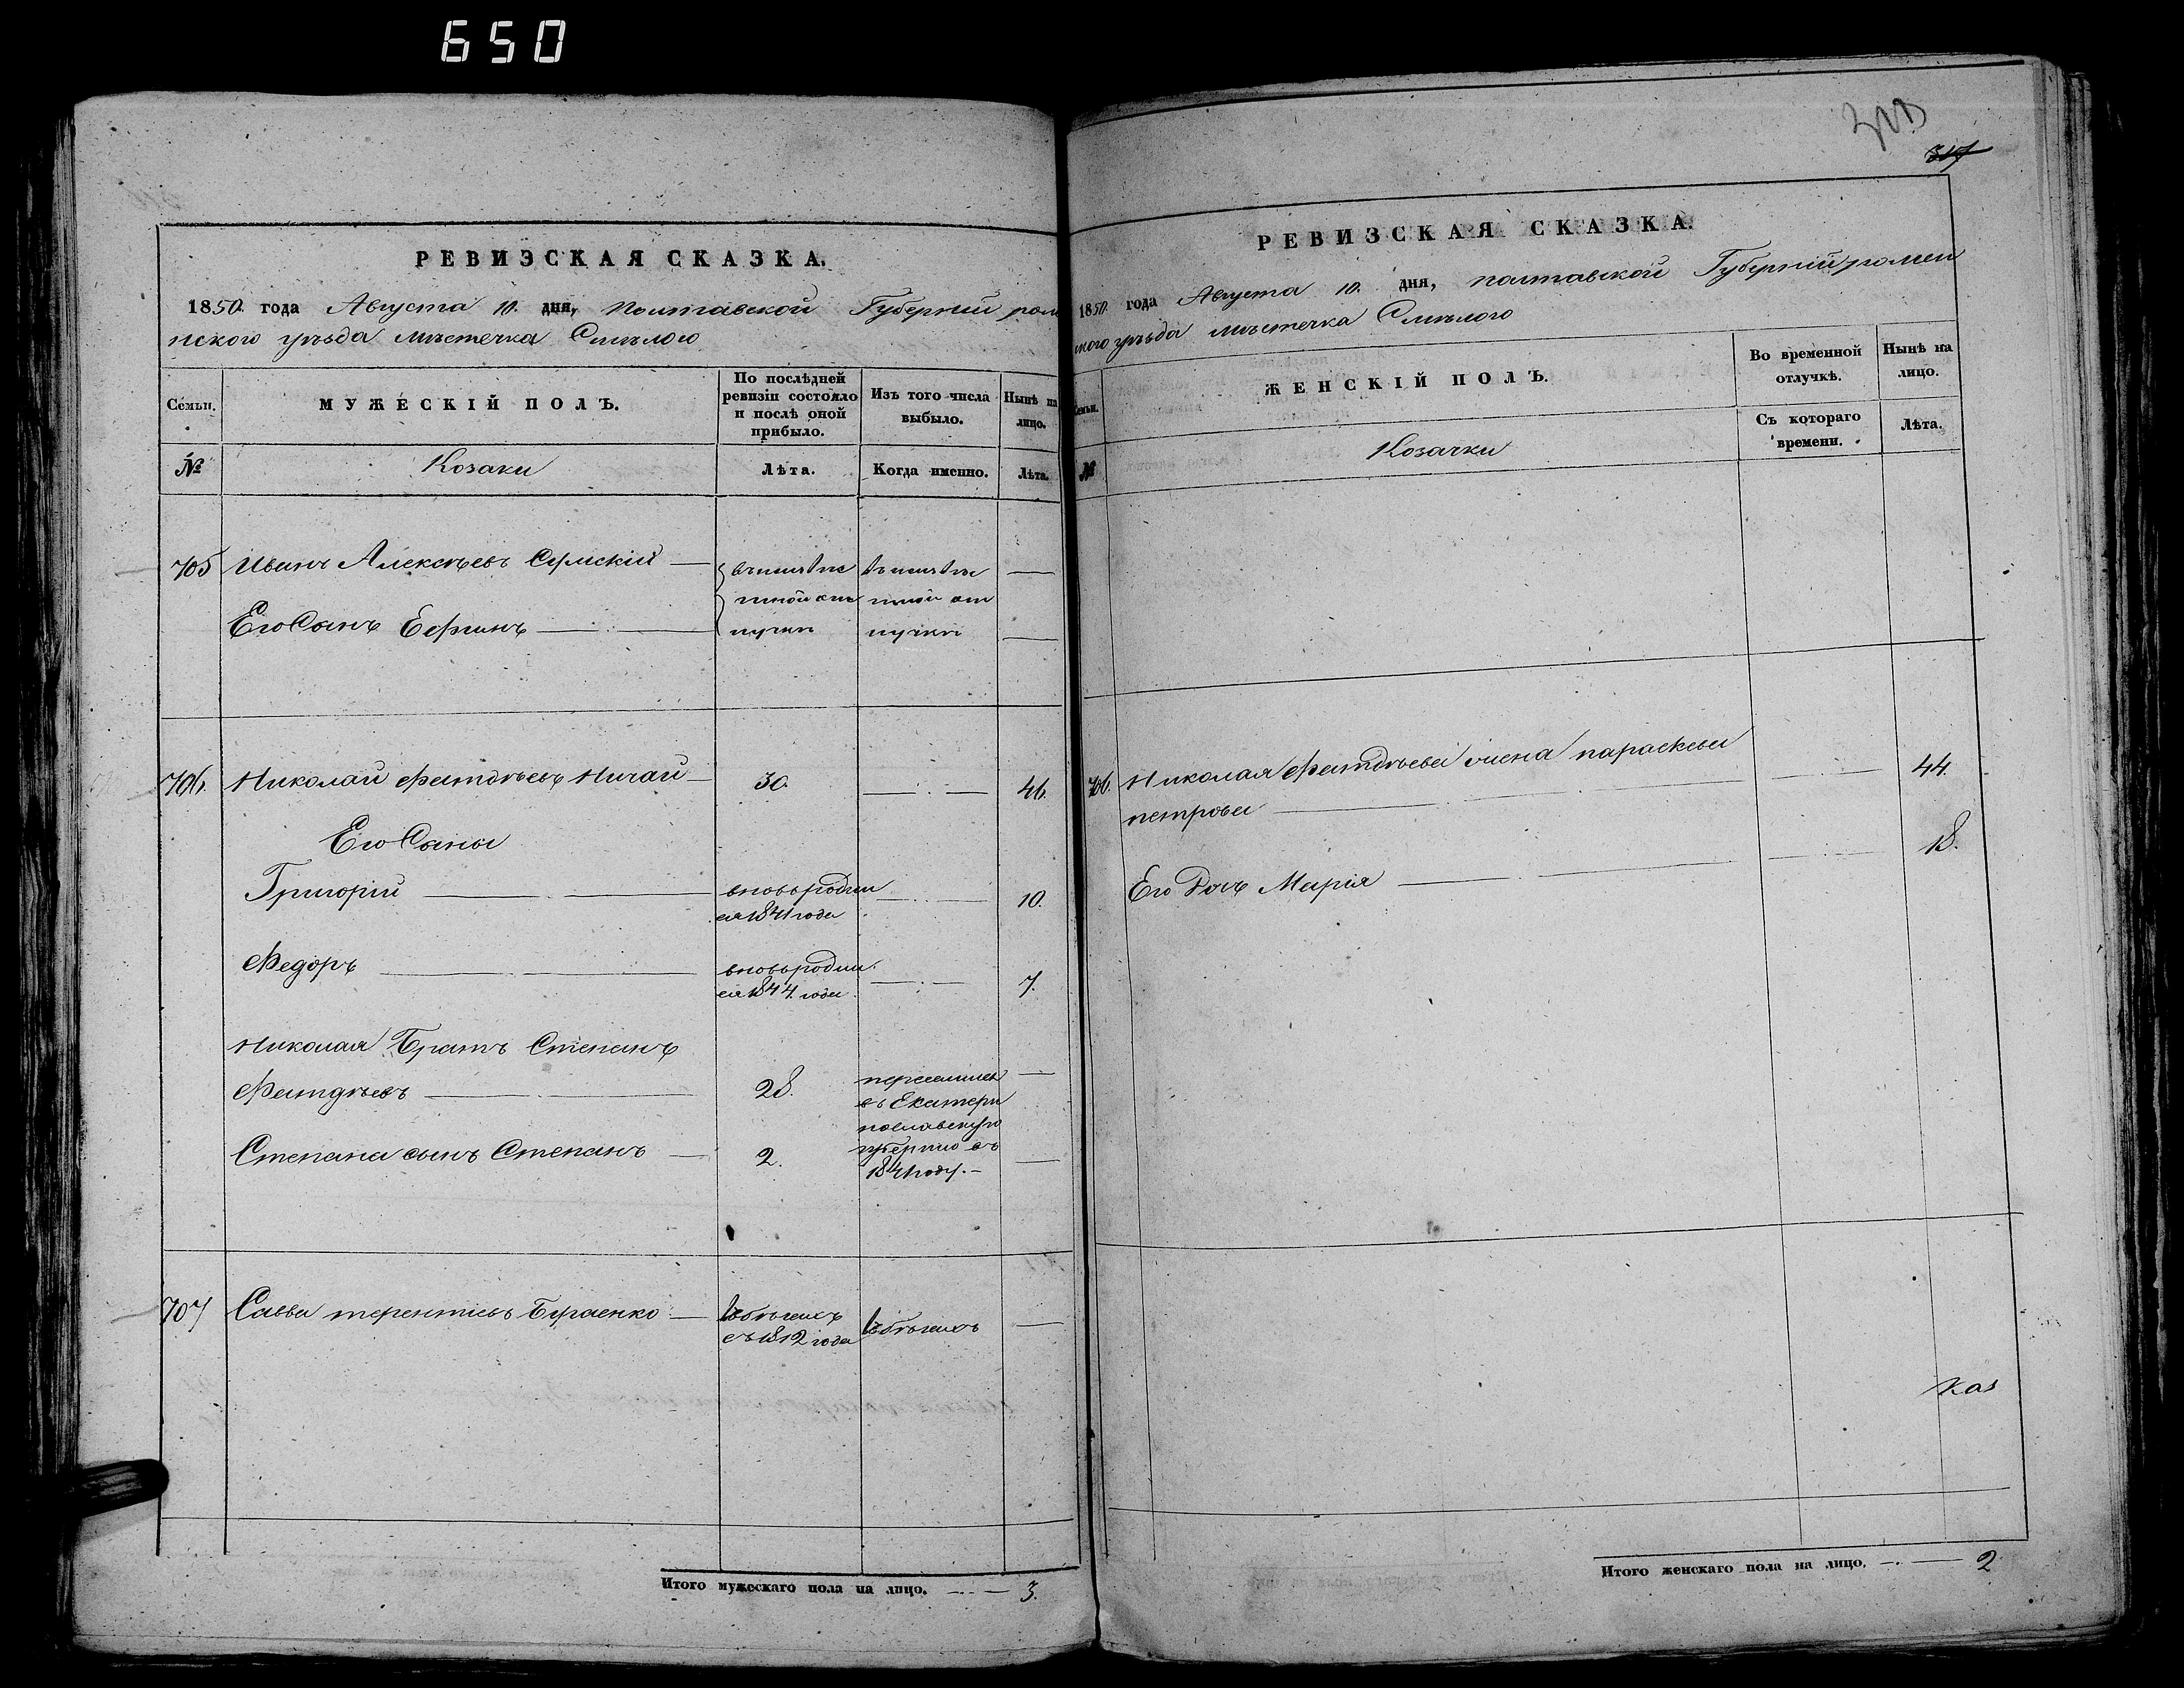 650
317
РЕВИЗСКАЯ СКАЗКА.
1850. года Августа 10. дня, Полтавской Губерніи ром
нского уѣзда мѣстечка Смѣлого
Семьи.
МУЖЕСКІЙ ПОЛЪ.
По послѣдней
ревизіи состояло
и послѣ оной
прибыло.
Изъ того числа
выбыло.
Нынѣ на
лицо.
№
Козаки
Лѣта.
Когда именно.
Лѣта.
705 Иванъ Алексѣевъ Сумскій —
Его Сынъ Ефимъ —
706. Николай Фатдѣевъ Ничай — 30. — 46.
Его Сыны
Григорій — вновьродил
ся 1841 года — 10.
Федоръ — вновьродил.
ся 1844. года. — 7.
Николая Братъ Степанъ
Фатдѣевъ — 28.
переселился —
въ Екатери
нославскую
губернію въ
1841 году. —
Степана сынъ Степанъ — 2. —
707 Савва терентіевъ —
въбѣгахъ
съ 1812 года
въбѣгахъ —
Итого мужескаго пола на лицо. — 3.
РЕВИЗСКАЯ СКАЗКА.
1850. года Августа 10. дня, полтавской Губерніи ромен
ского уѣзда мѣстечка Смѣлого
Семьи.
ЖЕНСКІЙ ПОЛЪ.
Во временной
отлучкѣ.
Нынѣ на
лицо.
№
Козачки
Съ котораго
времени.
Лѣта.
706. Николая Фатдѣева жена параскева
петрова — 44.
Его Дочь Марія — 18.
Каз
Итого женскаго пола на лицо. — 2